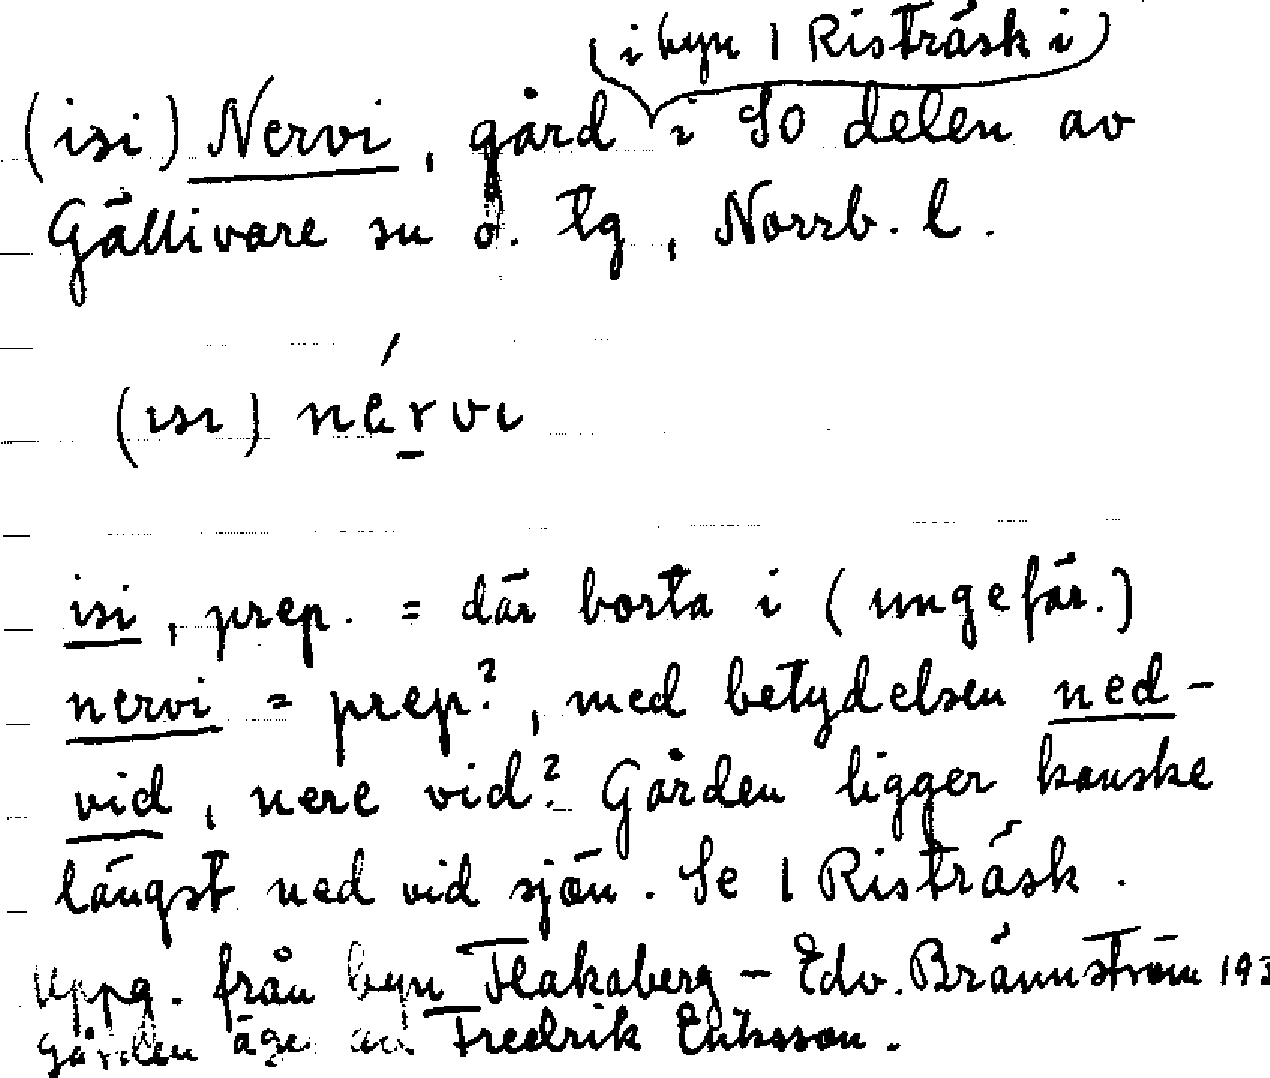 (i byn 1 Risträsk i)
(isi) Nervi, gård i SO delen av
Gällivare sn o. tg, Norrb. l.
(ısı) nérvı
isi, prep. = där borta i (ungefär.)
nervi = prep?, med betydelsen ned-
vid, nere vid? Gården ligger kanske
längst ned vid sjön. Se 1 Risträsk.
Uppg. från byn Flakaberg - Edv. Brännström 193
Gården äges av Fredrik Eriksson.